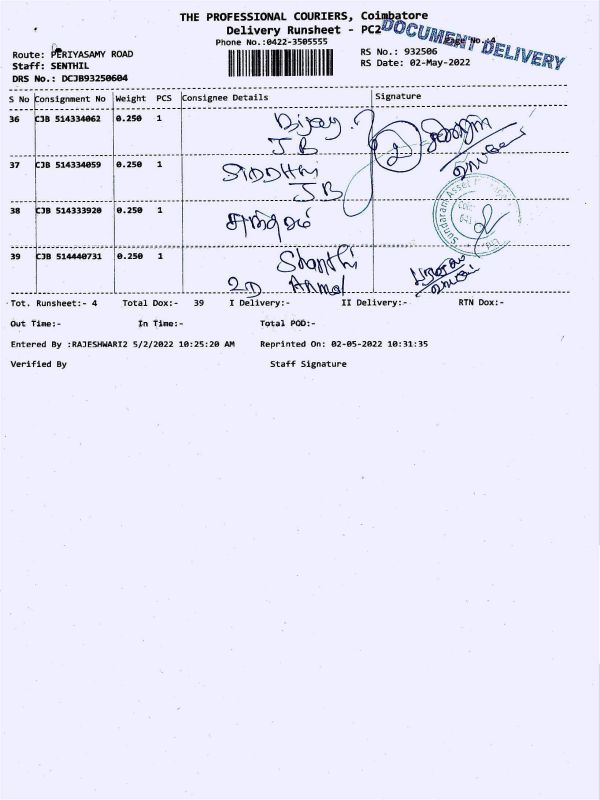 THE PROFESSIONAL COURIERS, Coimbatore
Delivery Runsheet - PC2
DOCUMENT DELIVERY
Phone No.:0422-3505555
Route: PERIYASAMY ROAD
RS No.: 932506
Staff: SENTHIL
RS Date: 02-May-2022
DRS No.: DCJB93250604
S No Consignment No Weight PCS Consignee Details Signature
36 CJB 514334062 0.250 1
J B
37 CJB 514334059 0.250 1 SIDDHI
J B
38 CJB 514333920 0.250 1
Sundaram Asset
39 CJB 514440731 0.250 1 Shanthi
2D
Tot. Runsheet:- 4 Total Dox:- 39 I Delivery:- II Delivery:- RTN Dox:-
Out Time:- In Time:- Total POD:-
Entered By :RAJESHWARI2 5/2/2022 10:25:20 AM Reprinted On: 02-05-2022 10:31:35
Verified By Staff Signature